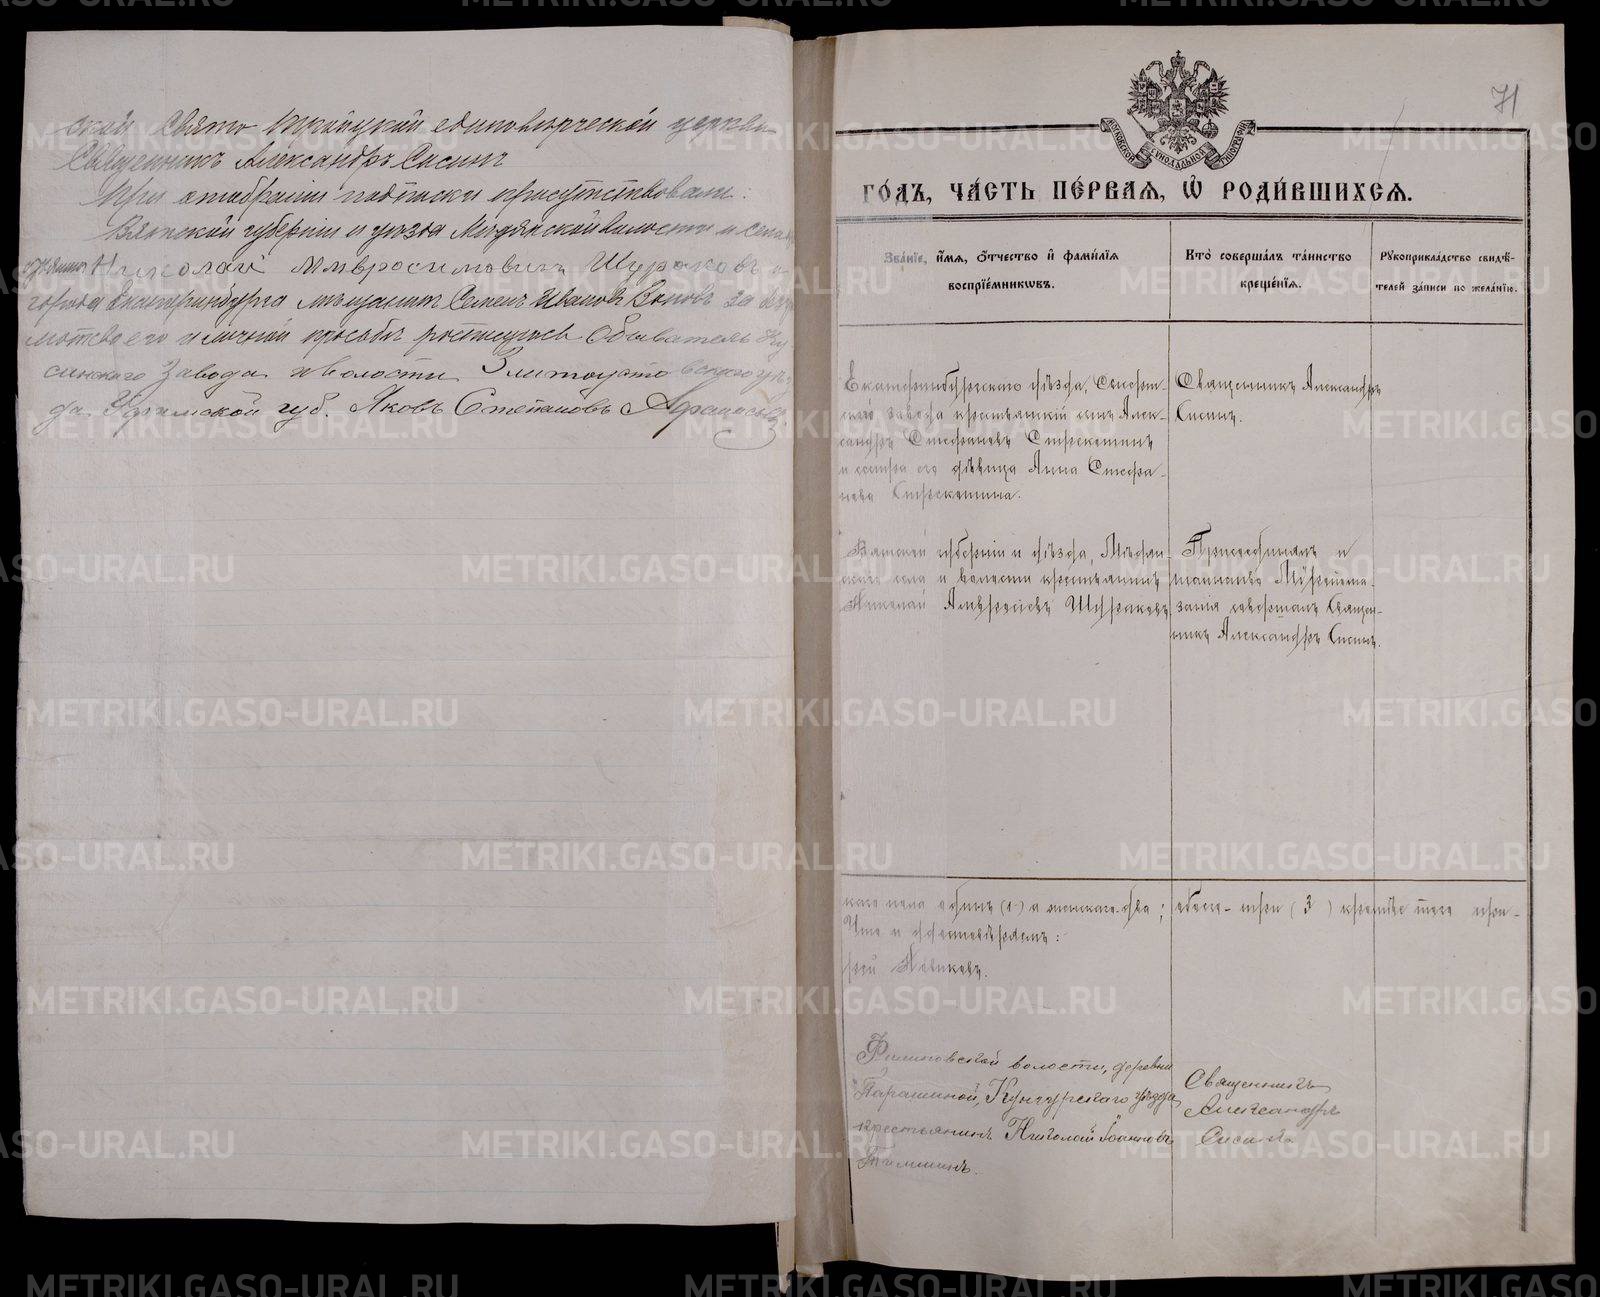 ской Свято Троицкой единоверческой церкви
Священникъ Александръ Сисинъ
При отобраніи подписки присутствовали:
Вятской губерніи и уезда Медянской волости и села
Николай Амвросимовичъ Шураковъ и
города Екатеринбурга мещанинъ Семенъ Ивановъ Воповъ за безгра
мотство его и личной просьбе росписуюсь Обыватель Ку
синского Завода и волости Златоустовского уез
да Уфимской губ. Яковъ Степановъ Афанасьевъ
71
МОСКОВСКОЙ СѴНОДАЛЬНОЙ ТИПОГРАФІИ
ГО́ДЪ, ЧА́СТЬ ПЕ́РВАЯ, Ѽ РОДИ́ВШИХСЯ.
Зва́нїе, и҆́мѧ, ѻ҆́тчество и҆ фами́лїѧ воспрїе́мникѡвъ.
Кто̀ соверша́лъ та́инство креще́нїѧ.
Рꙋкоприкла́дство свидѣ́телей за́писи по жела́нїю.
Екатеринбургскаго уѣзда, Сысерт-
скаго завода крестьянскій сынъ Алек-
сандръ Стефановъ Стрекотинъ
и сестра его дѣвица Анна Стефа-
нова Стрекотина.
Священникъ Александръ
Сисинъ.
Вятской губерніи и уѣзда, Мѣдян-
скаго села и волости крестьянинъ
Николай Амвросіевъ Шураковъ
Присоединялъ и
таинство Мѵропома-
занія совершалъ Священ-
никъ Александръ Сисинъ.
скаго пола одинъ (1) а женскаго два; обоего три (3) кромѣ того при-
Что и удостовѣряемъ:
рей Новиковъ.
Филиповской волости, деревни
Парашиной, Кунгурскаго уѣзда
крестьянинъ Николай Іоанновъ
Томшинъ.
Священникъ
Александръ
Сисинъ
METRIKI.GASO-URAL.RU